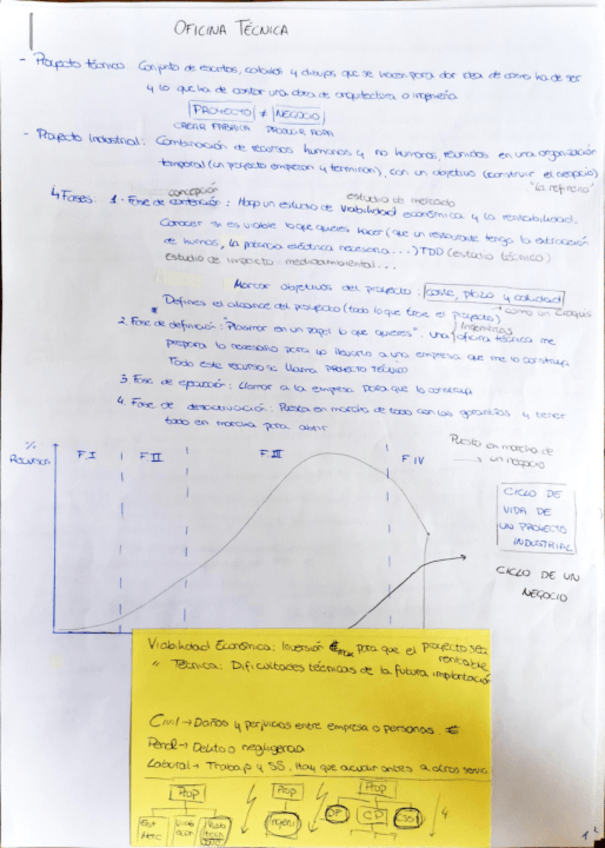 OFICINA TÉCNICA
- Proyecto técnico Conjunto de escritos, cálculos y dibujos que se hacen para dar idea de cómo ha de ser
y lo que ha de costar una obra de arquitectura o ingeniería
PROYECTO ≠ NEGOCIO
CREAR FÁBRICA PRODUCIR ROPA
- Proyecto Industrial: Combinación de recursos humanos y no humanos, reunidos en una organización
temporal (un proyecto empieza y termina), con un objetivo (construir el negocio)
"la reforma"
concepción estudio de mercado
4 Fases: 1. Fase de : Hago un estudio de viabilidad económica y la rentabilidad.
Conocer si es viable lo que quieres hacer (que un restaurante tenga la extracción
de humos, la potencia eléctrica necesaria...) TDD (estudio técnico)
estudio de impacto medioambiental...
Marcar objetivos del proyecto: coste, plazo y calidad
Defines el alcance del proyecto (todo lo que tiene el proyecto) como un croquis
Ingenierías
2. Fase de definición: "Plasmar en un papel lo que quieres". Una oficina técnica me
prepara lo necesario para yo llevarlo a una empresa que me lo construya
Todo este recurso se llama PROYECTO TÉCNICO
3. Fase de ejecución: Llamar a la empresa para que lo construya
4. Fase de desactivación: Puesta en marcha de todo con las garantías y tener
todo en marcha para abrir
%
Recursos
F.I F.II F.III F.IV
Puesta en marcha de
→ un negocio
CICLO DE
VIDA DE
UN PROYECTO
INDUSTRIAL
CICLO DE UN
NEGOCIO
Viabilidad Económica: Inversión €max para que el proyecto sea
rentable
" Técnica: Dificultades técnicas de la futura implantación
Civil → Daños y perjuicios entre empresa o personas. €
Penal → Delito o negligencia
Laboral → Trabajo y SS. Hay que acudir antes a otros
Prop Prop Prop
Ingeni DF CP CSS